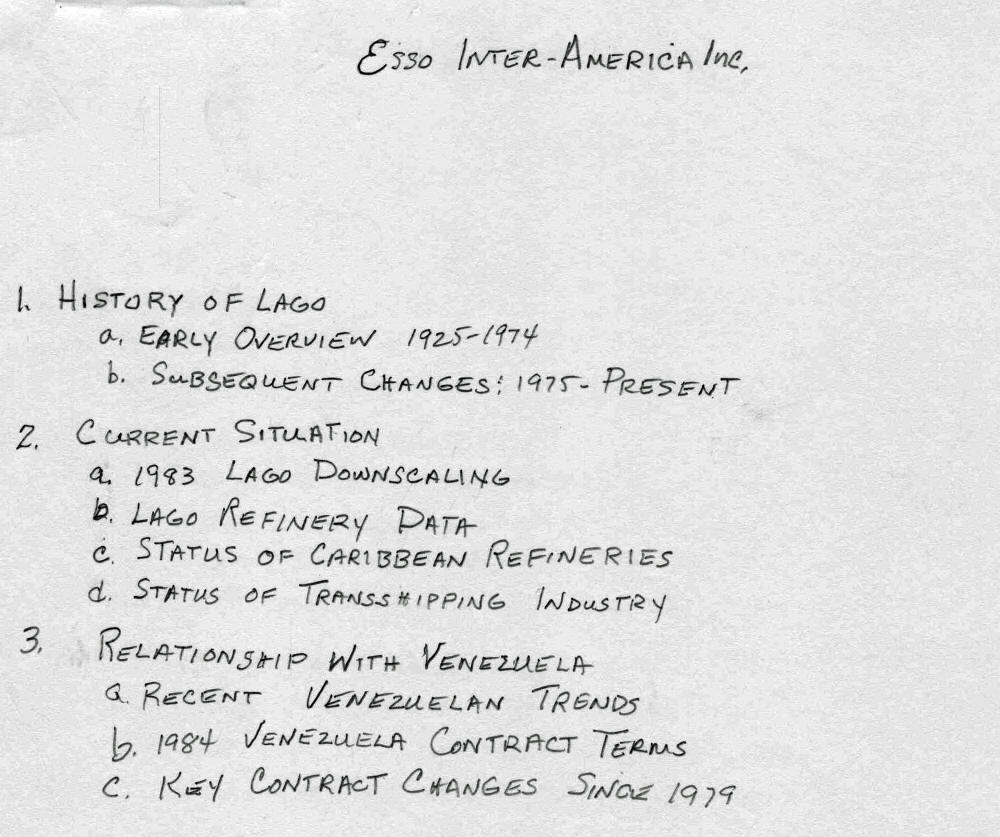 Esso Inter-America Inc.
1. History of Lago
a. Early Overview 1925-1974
b. Subsequent Changes: 1975- Present
2. Current Situation
a. 1983 Lago Downscaling
b. Lago Refinery Data
c. Status of Caribbean Refineries
d. Status of Transshipping Industry
3. Relationship with Venezuela
a. Recent Venezuelan Trends
b. 1984 Venezuela Contract Terms
c. Key Contract Changes Since 1979